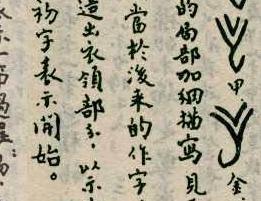 甲 金
的局部加細描寫見
當於後来的作字
造出衣領部分,以示
初字表示開始。